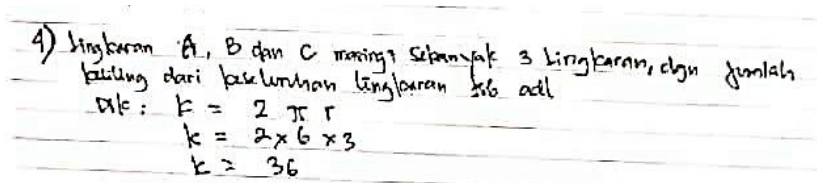 4) Lingkaran A, B dan C masing² sebanyak 3 Lingkaran, dgn jumlah
keliling dari keseluruhan lingkaran tsb adl
Dik : k = 2 π r
k = 2 x 6 x 3
k = 36